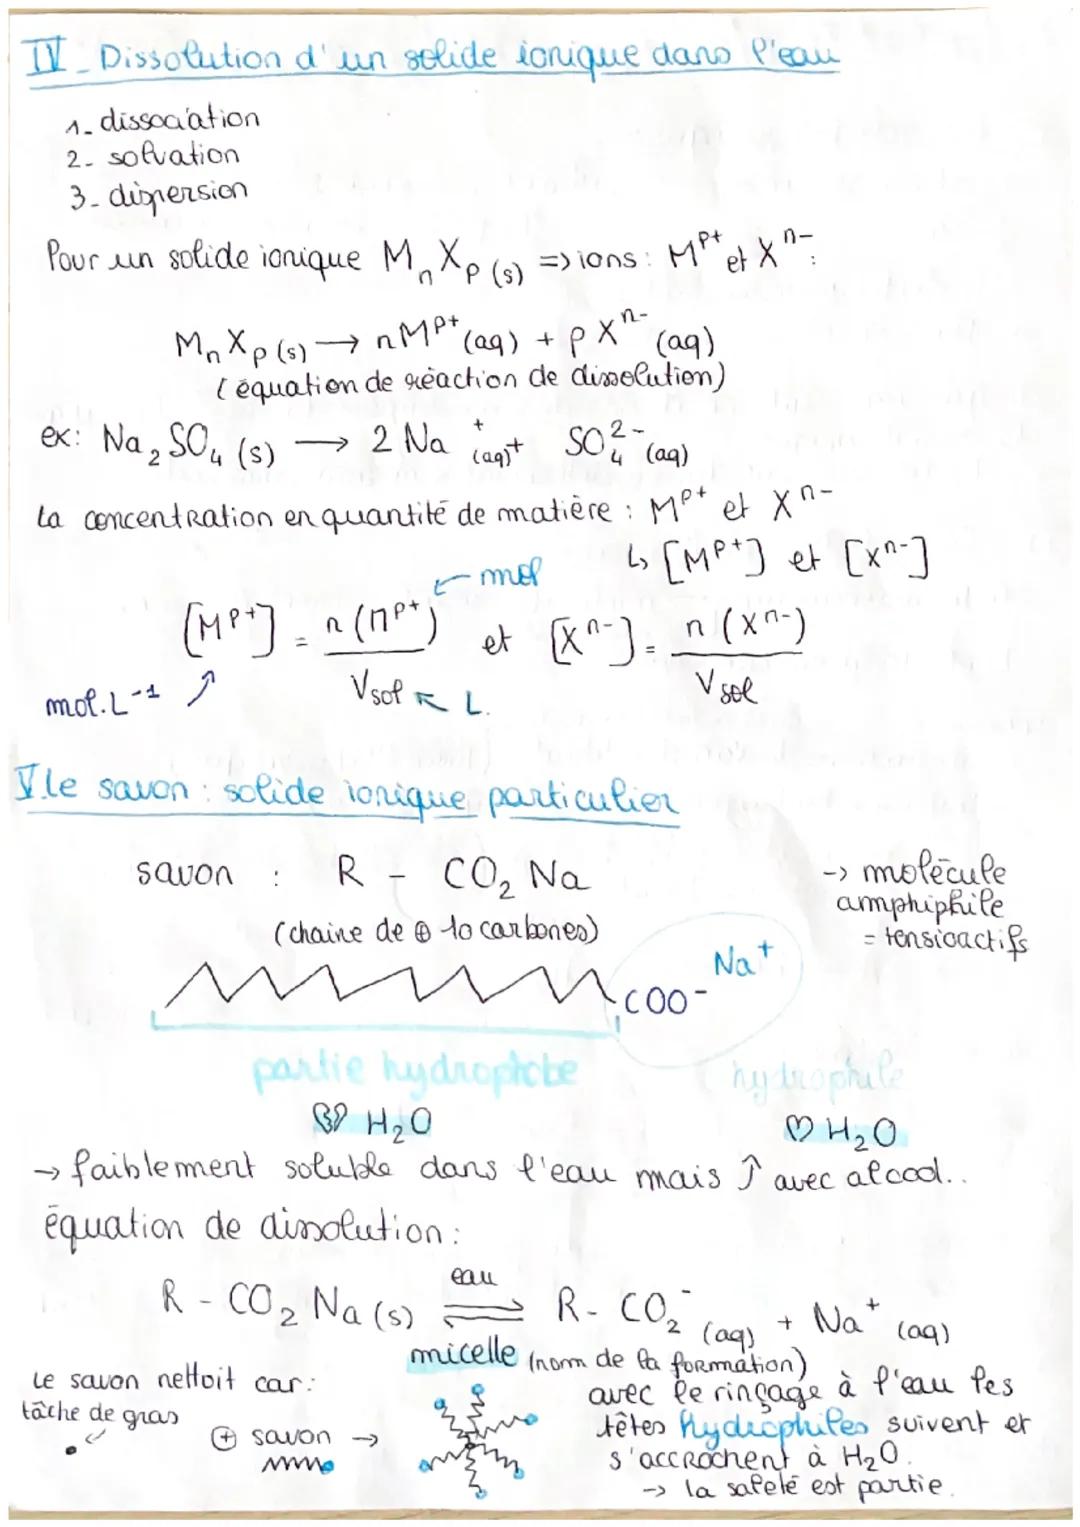 IV_Dissolution d'un solide ionique dans l'eau
1_ dissociation
2_ solvation
3_ dispersion
Pour un solide ionique MₙXₚ (s) => ions : Mᵖ⁺ et Xⁿ⁻ :
MₙXₚ (s) → n Mᵖ⁺ (aq) + p Xⁿ⁻ (aq)
(équation de réaction de dissolution)
ex: Na₂SO₄ (s) → 2 Na⁺ (aq) + SO₄²⁻ (aq)
La concentration en quantité de matière : Mᵖ⁺ et Xⁿ⁻
↳ [Mᵖ⁺] et [Xⁿ⁻]
← mol
[Mᵖ⁺] = n (Mᵖ⁺) et [Xⁿ⁻] = n (Xⁿ⁻)
mol.L⁻¹ ↗ Vsol ↖ L. Vsol
V.le savon : solide ionique particulier
savon : R - CO₂ Na
(chaine de ⊕ 10 carbones)
-> molécule
amphiphile
= tensioactifs
COO⁻ Na⁺
partie hydrophobe hydrophile
💔 H₂O ♡ H₂O
→ faiblement soluble dans l'eau mais ↑ avec alcool..
équation de dissolution :
eau
R - CO₂ Na (s) ⇌ R - CO₂⁻ (aq) + Na⁺ (aq)
micelle (nom de la formation)
Le savon nettoit car :
tâche de gras
⊕ savon →
avec le rinçage à l'eau les
têtes hydrophiles suivent et
s'accrochent à H₂O.
-> la saleté est partie.